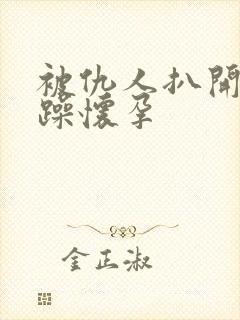 被仇人扒開
躁懷孕
金正淑